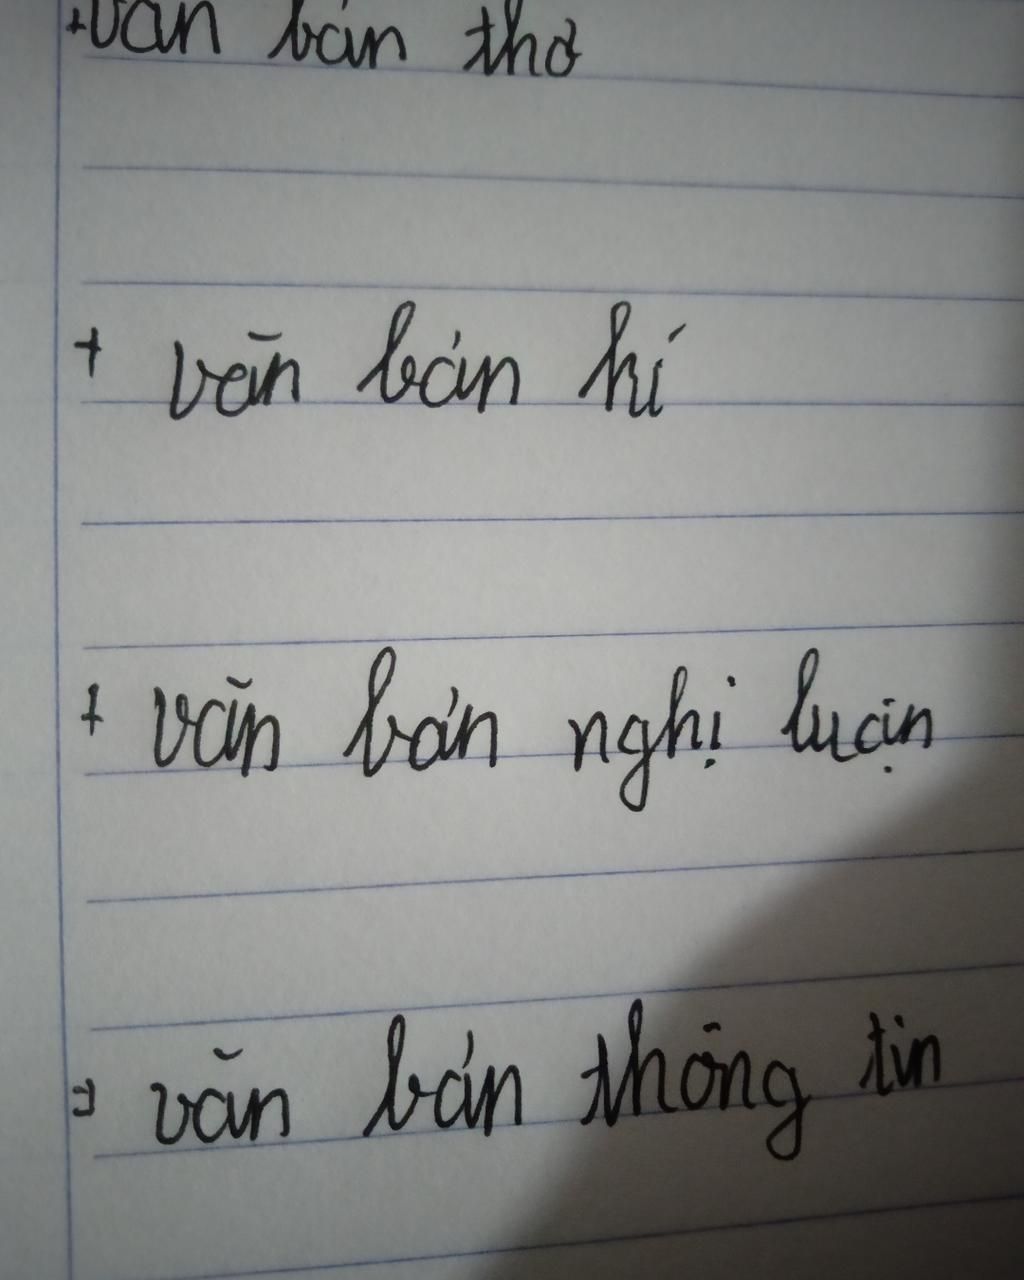 + văn bản thơ
+ văn bản kí
+ văn bản nghị luận
=> văn bản thông tin